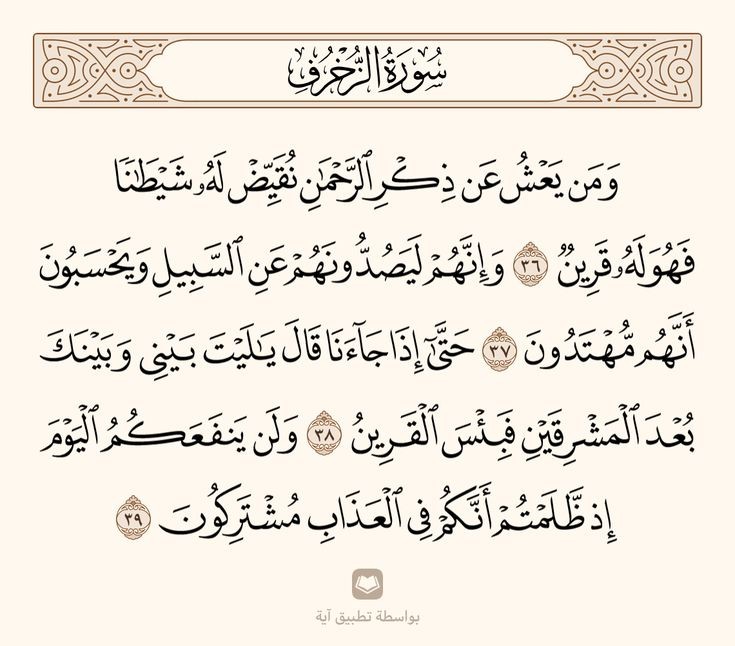 سُورَةُ الزُّخْرُفِ
وَمَن يَعْشُ عَن ذِكْرِ ٱلرَّحْمَٰنِ نُقَيِّضْ لَهُۥ شَيْطَٰنًا
فَهُوَ لَهُۥ قَرِينٌ ٣٦ وَإِنَّهُمْ لَيَصُدُّونَهُمْ عَنِ ٱلسَّبِيلِ وَيَحْسَبُونَ
أَنَّهُم مُّهْتَدُونَ ٣٧ حَتَّىٰٓ إِذَا جَآءَنَا قَالَ يَٰلَيْتَ بَيْنِى وَبَيْنَكَ
بُعْدَ ٱلْمَشْرِقَيْنِ فَبِئْسَ ٱلْقَرِينُ ٣٨ وَلَن يَنفَعَكُمُ ٱلْيَوْمَ
إِذ ظَّلَمْتُمْ أَنَّكُمْ فِى ٱلْعَذَابِ مُشْتَرِكُونَ ٣٩
بواسطة تطبيق آية